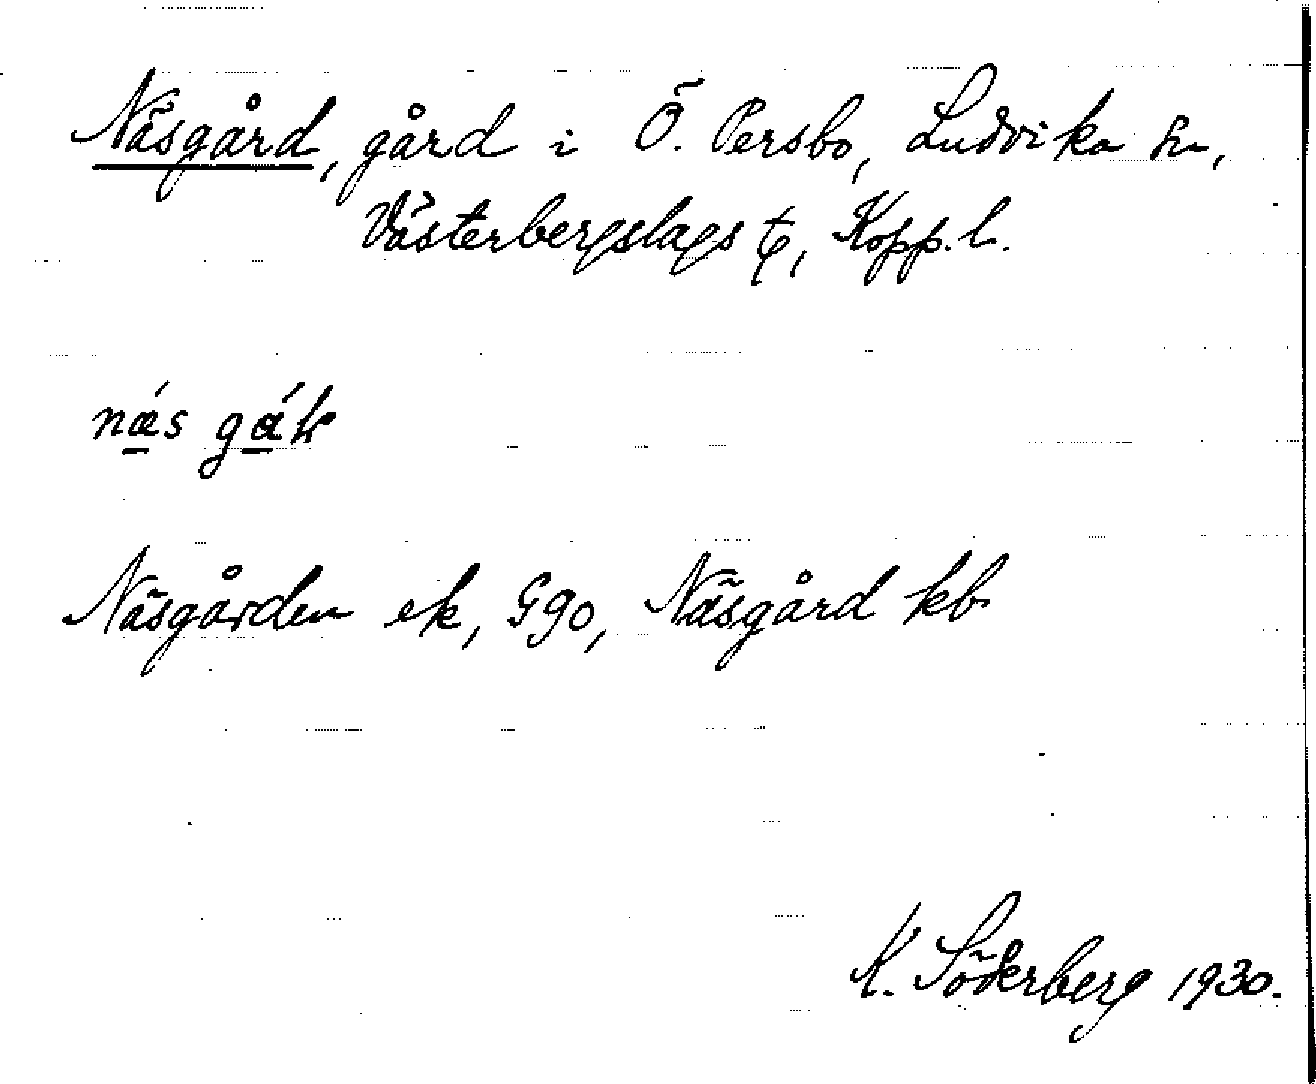 Näsgård, gård i Ö. Persbo, Ludvika sn,
Västerbergslags tg, Kopp. l.
Näsgården ek, G90, Näsgård kb
K. Söderberg 1930.